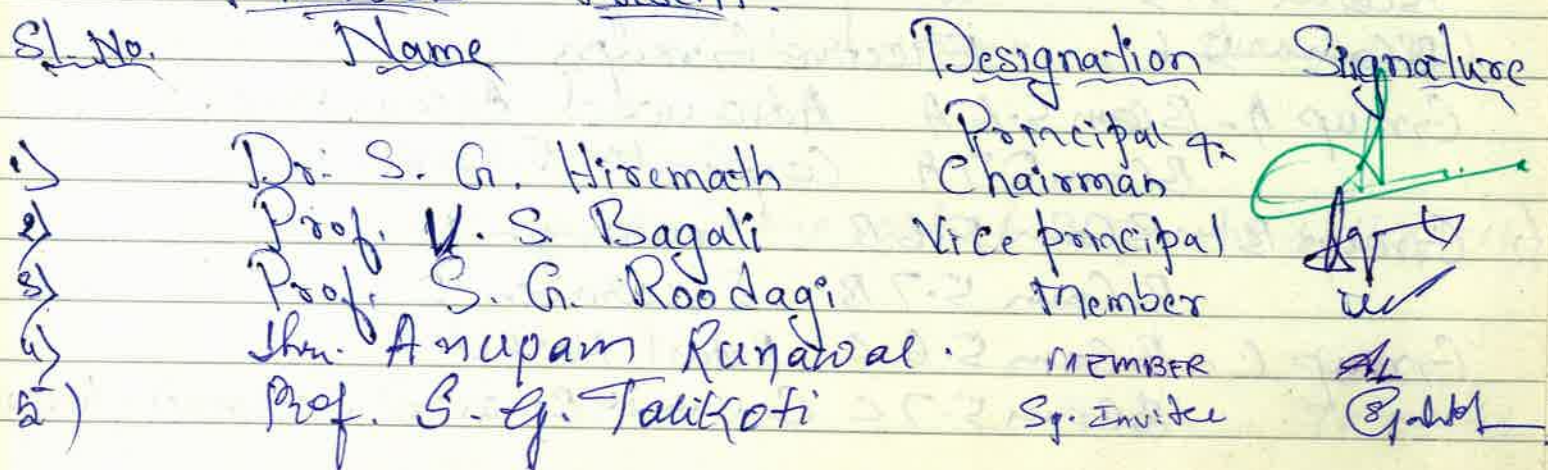 Sl. No. Name Designation Signature
1) Dr. S. G. Hiremath Principal & Chairman
2) Prof. V. S. Bagali Vice principal
3) Prof. S. G. Roodagi Member
4) Shri. Anupam Runawal. MEMBER
5) Prof. S. G. Talikoti Sp. Invitee